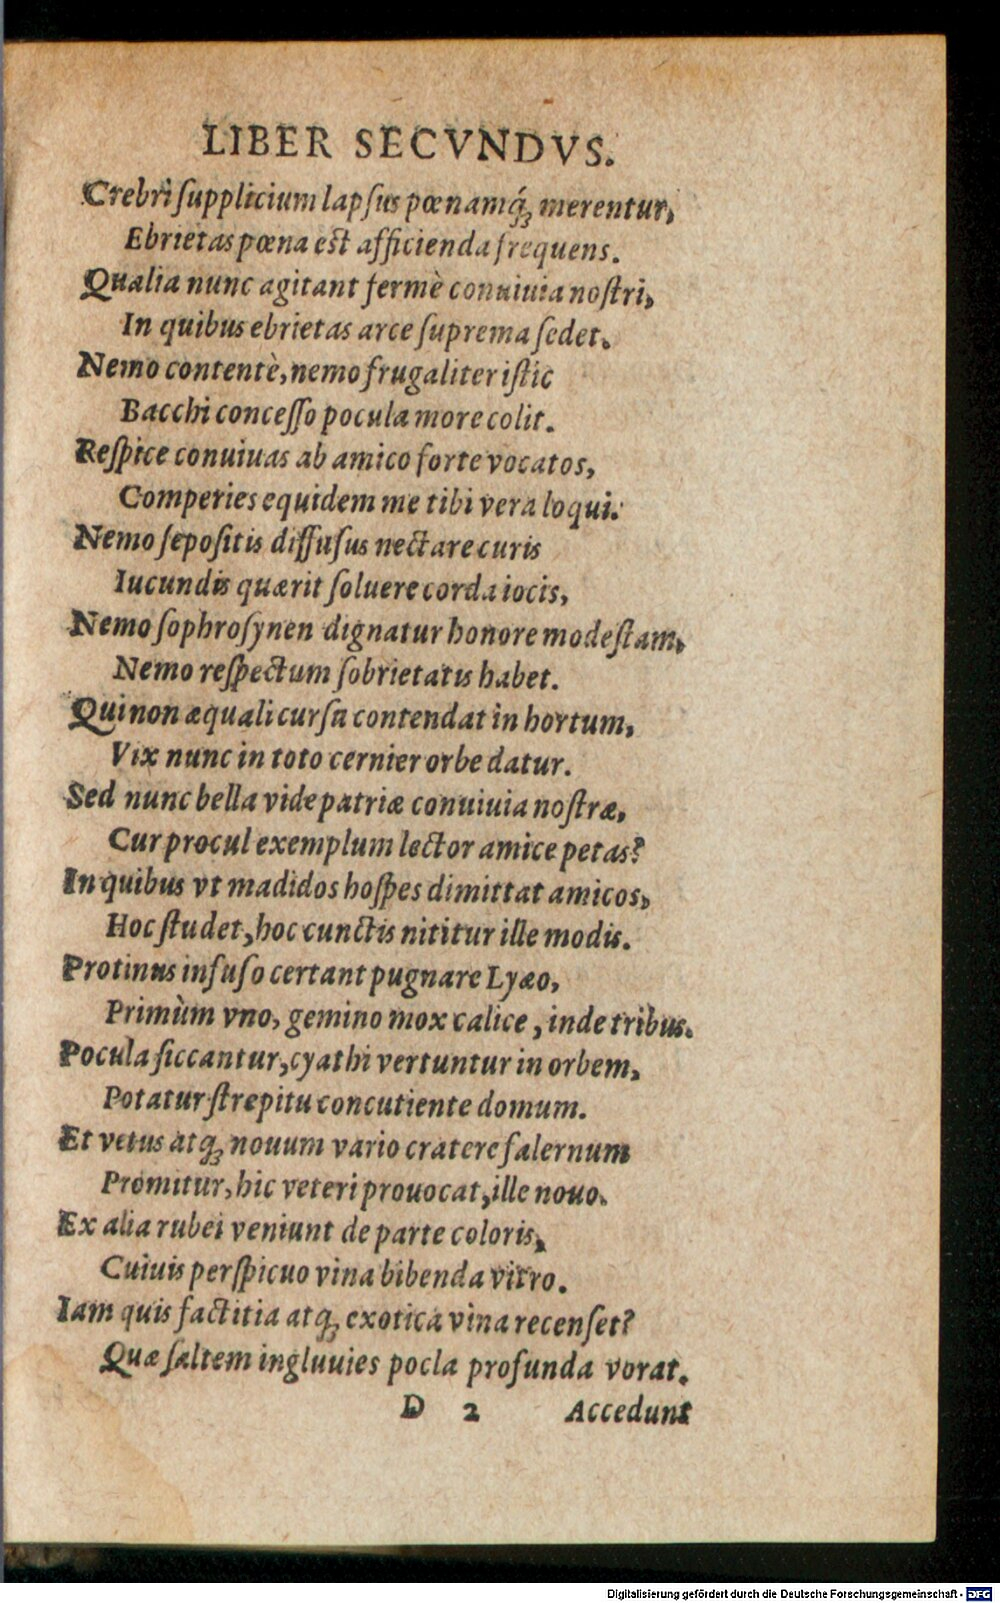 LIBER SECVNDVS.
Crebri ſupplicium lapſus pœnamq́ꝫ merentur,
Ebrietas pœna eſt afficienda frequens.
Qualia nunc agitant fermè conuiuia noſtri,
In quibus ebrietas arce ſuprema ſedet.
Nemo contentè, nemo frugaliter iſtic
Bacchi conceſſo pocula more colit.
Reſpice conuiuas ab amico forte vocatos,
Comperies equidem me tibi vera loqui.
Nemo ſepoſitis diffuſus nectare curis
Iucundis quærit ſoluere corda iocis,
Nemo ſophroſynen dignatur honore modeſtam,
Nemo reſpectum ſobrietatis habet.
Qui non æquali curſu contendat in hortum,
Vix nunc in toto cernier orbe datur.
Sed nunc bella vide patriæ conuiuia noſtræ,
Cur procul exemplum lector amice petas?
In quibus vt madidos hoſpes dimittat amicos,
Hoc ſtudet, hoc cunctis nititur ille modis.
Protinus infuſo certant pugnare Lyæo,
Primùm vno, gemino mox calice, inde tribus.
Pocula ſiccantur, cyathi vertuntur in orbem,
Potatur ſtrepitu concutiente domum.
Et vetus atqꝫ nouum vario cratere falernum
Promitur, hic veteri prouocat, ille nouo.
Ex alia rubei veniunt de parte coloris,
Cuiuis perſpicuo vina bibenda vitro.
Iam quis factitia atqꝫ exotica vina recenſet?
Quæ ſaltem ingluuies pocla profunda vorat.
D 2 Accedunt
Digitalisierung gefördert durch die Deutsche Forschungsgemeinschaft - DFG